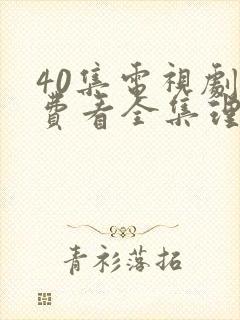 40集電視劇
費看全集理
青衫落拓